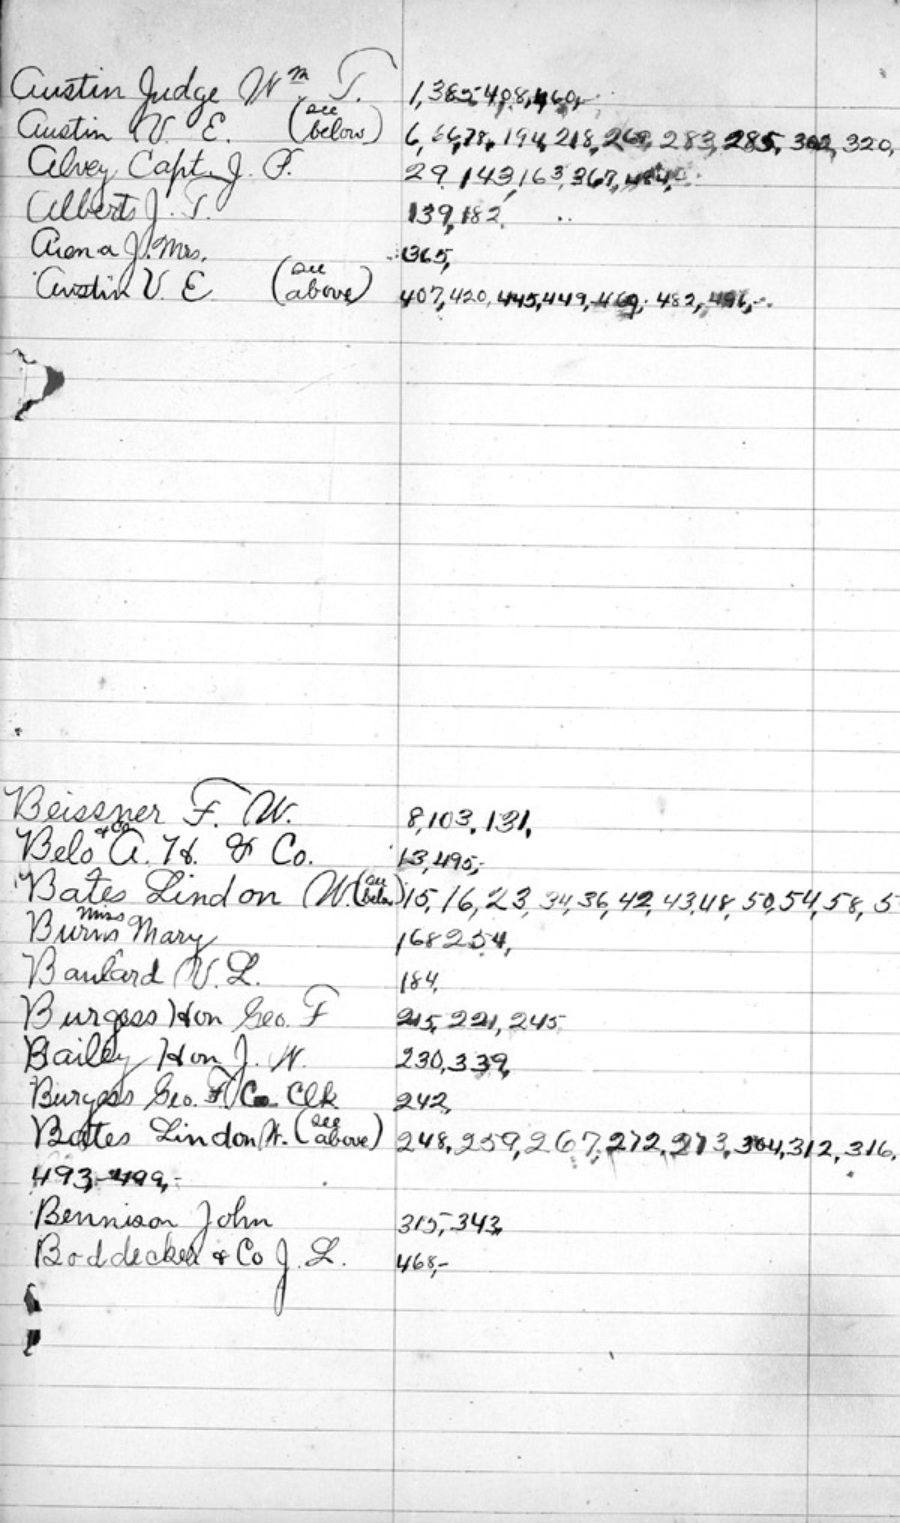 Austin Judge Wm. T. 1, 385, 408, 460,-
Austin V. E. (see below) 6, 66, 78, 194, 218, 262, 283, 285, 302, 320,
Alvey Capt. J. P. 29, 143, 163, 367, 484,
Alberts J. T. 139, 182,
Arena J. Mrs. 365,
Austin V. E. (see above) 407, 420, 445, 449, 469, 482, 496,-
Beissner F. W. 8, 103, 131,
Belo & Co A. H. & Co. 13, 495,-
Bates Lindon W. (see below) 15, 16, 23, 34, 36, 42, 43, 48, 50, 54, 58, 5
Burns Miss Mary 168, 254,
Baulard V. L. 184,
Burgess Hon Geo. F 215, 221, 245
Bailey Hon J. W. 230, 339,
Burgess Geo. F. Co. Clk 242,
Bates Lindon W. (see above) 248, 259, 267, 272, 273, 304, 312, 316,
493,-499,-
Bennison John 315, 343,
Boddecker & Co J. L. 468,-